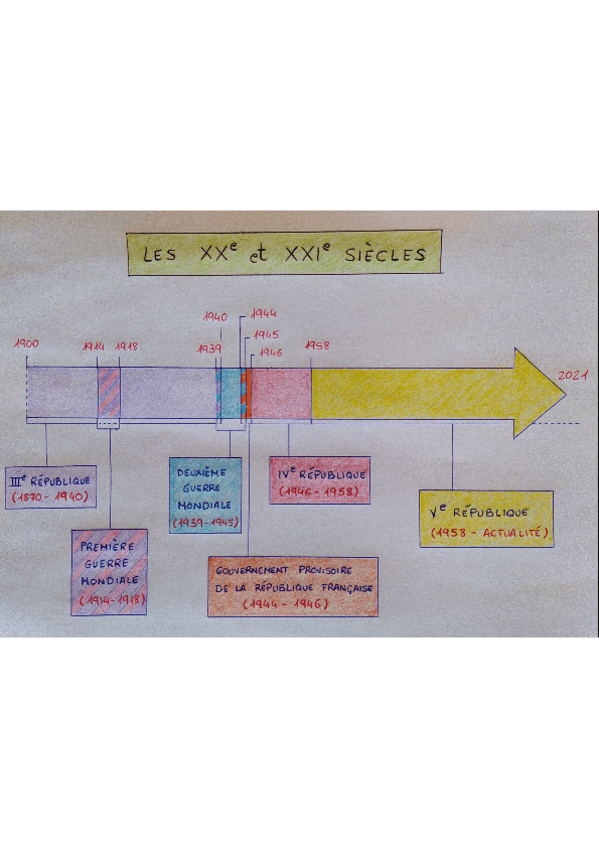 LES XXe et XXIe SIÈCLES
1900
1914
1918
1939
1940
1944
1945
1946
1958
2021
IIIe RÉPUBLIQUE
(1870 - 1940)
PREMIÈRE
GUERRE
MONDIALE
(1914-1918)
DEUXIÈME
GUERRE
MONDIALE
(1939-1945)
GOUVERNEMENT PROVISOIRE
DE LA RÉPUBLIQUE FRANÇAISE
(1944 - 1946)
IVe RÉPUBLIQUE
(1946 - 1958)
Ve RÉPUBLIQUE
(1958 - ACTUALITÉ)